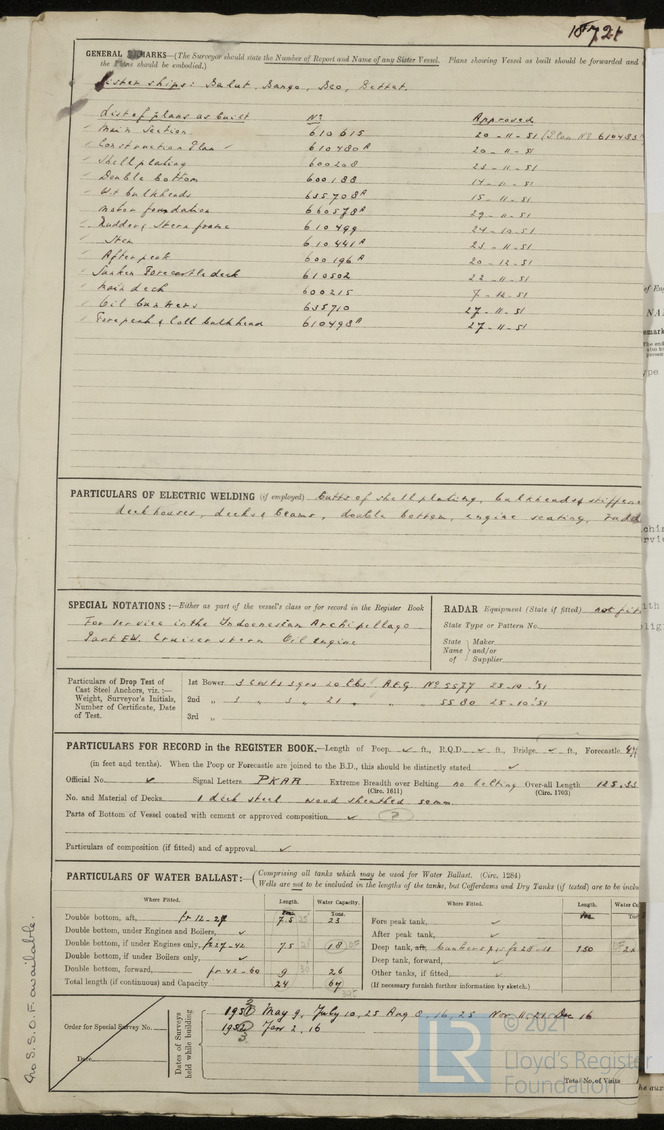 GENERAL REMARKS—(The Surveyor should state the Number of Report and Name of any Sister Vessel. Plans showing Vessel as built should be forwarded and
the Plans should be embodied.)
Sister ships:
List of plans as built No Approved
Main Section 610615 20-11-51
Construction Plan 610480A 20-11-51
Shell plating 600208 23-11-51
Double bottom 600188 14-11-51
Wt bulkheads 635708A 15-11-51
Motor foundation 660578A 29-11-51
Rudder & Stern frame 610499 24-10-51
Stem 610441A 23-11-51
Afterpeak 600196A 20-12-51
Sunken Forecastle deck 610502 22-11-51
Main deck 600215 7-12-51
Oil bunkers 635710 27-11-51
Forepeak & Coll bulkhead 610498A 27-11-51
PARTICULARS OF ELECTRIC WELDING (if employed) Butts of shell plating, bulkheads &
deckhouses, decks & beams, double bottom, engine seating,
SPECIAL NOTATIONS:—Either as part of the vessel's class or for record in the Register Book
For service in the Indonesian Archipelago
Part EW. Cruiser stern Oil engine
RADAR Equipment (State if fitted) not
State Type or Pattern No.
State Name of
Maker and/or Supplier
Particulars of Drop Test of
Cast Steel Anchors, viz.:—
Weight, Surveyor's Initials,
Number of Certificate, Date
of Test.
1st Bower 3 cwts 3 qrs 20 lbs. No 5577 25-10-'51
2nd " 3 " 3 " 21 " " 5580 25-10-'51
3rd "
PARTICULARS FOR RECORD in the REGISTER BOOK.—Length of Poop ft., R.Q.D. ft., Bridge ft., Forecastle
(in feet and tenths). When the Poop or Forecastle are joined to the B.D., this should be distinctly stated
Official No. Signal Letters PKAR Extreme Breadth over Belting no belting Over-all Length 125.33
(Circ. 1611) (Circ. 1703)
No. and Material of Decks 1 deck steel wood sheathed 50mm
Parts of Bottom of Vessel coated with cement or approved composition ?
Particulars of composition (if fitted) and of approval
PARTICULARS OF WATER BALLAST:—
Comprising all tanks which may be used for Water Ballast. (Circ. 1284)
Wells are not to be included in the lengths of the tanks, but Cofferdams and Dry Tanks (if tested) are to be
Where Fitted. Length. Water Capacity. Tons.
Double bottom, aft, fr 12-27 7.5 23
Double bottom, under Engines and Boilers,
Double bottom, if under Engines only, fr 27-42 7.5 18
Double bottom, if under Boilers only,
Double bottom, forward, fr 42-60 9 26
Total length (if continuous) and Capacity 24 67
Where Fitted. Length.
Fore peak tank,
After peak tank,
Deep tank, aft, bunkers p&s 750
Deep tank, forward,
Other tanks, if fitted,
(If necessary furnish further information by sketch.)
Order for Special Survey No.
Date
Dates of Surveys
held while building
May 9, July 10, 25 Aug 16, 25 Nov 11, 21, Dec 16
2. 16
Total No. of Visits
No S.S.O.F. available.
© 2021
LR
Lloyd's Register
Foundation